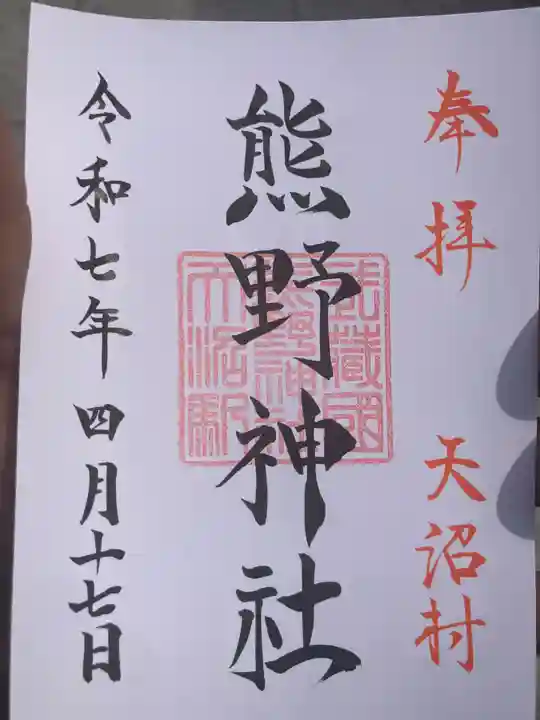 奉拝
天沼村
熊野神社
武蔵國
熊野神社
天沼郷
令和七年四月十七日